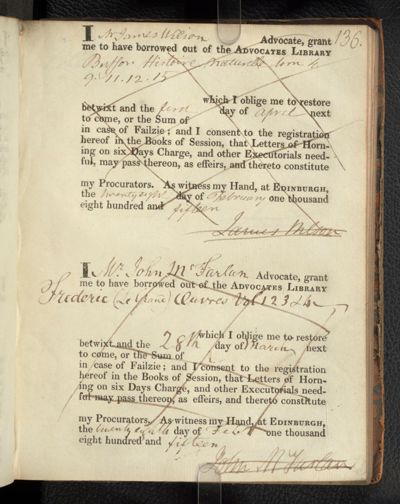 136.
I Mr James Wilson Advocate, grant
me to have borrowed out of the ADVOCATES LIBRARY
Buffon Histoire Naturelle tom 4
9. 11. 12. 15
which I oblige me to restore
betwixt and the first day of April next
to come, or the Sum of
in case of Failzie; and I consent to the registration
hereof in the Books of Session, that Letters of Horn-
ing on six Days Charge, and other Executorials need-
ful, may pass thereon, as effeirs, and thereto constitute
my Procurators. As witness my Hand, at EDINBURGH,
the twenty eight day of February one thousand
eight hundred and fifteen
James Wilson
I Mr. John McFarlan Advocate, grant
me to have borrowed out of the ADVOCATES LIBRARY
Frederic (Le Grand) Œuvres Vol 1 2 3 & 4
which I oblige me to restore
betwixt and the 28th day of March next
to come, or the Sum of
in case of Failzie; and I consent to the registration
hereof in the Books of Session, that Letters of Horn-
ing on six Days Charge, and other Executorials need-
ful may pass thereon, as effeirs, and thereto constitute
my Procurators. As witness my Hand, at EDINBURGH,
the twenty eighth day of Feby one thousand
eight hundred and fifteen
John McFarlan